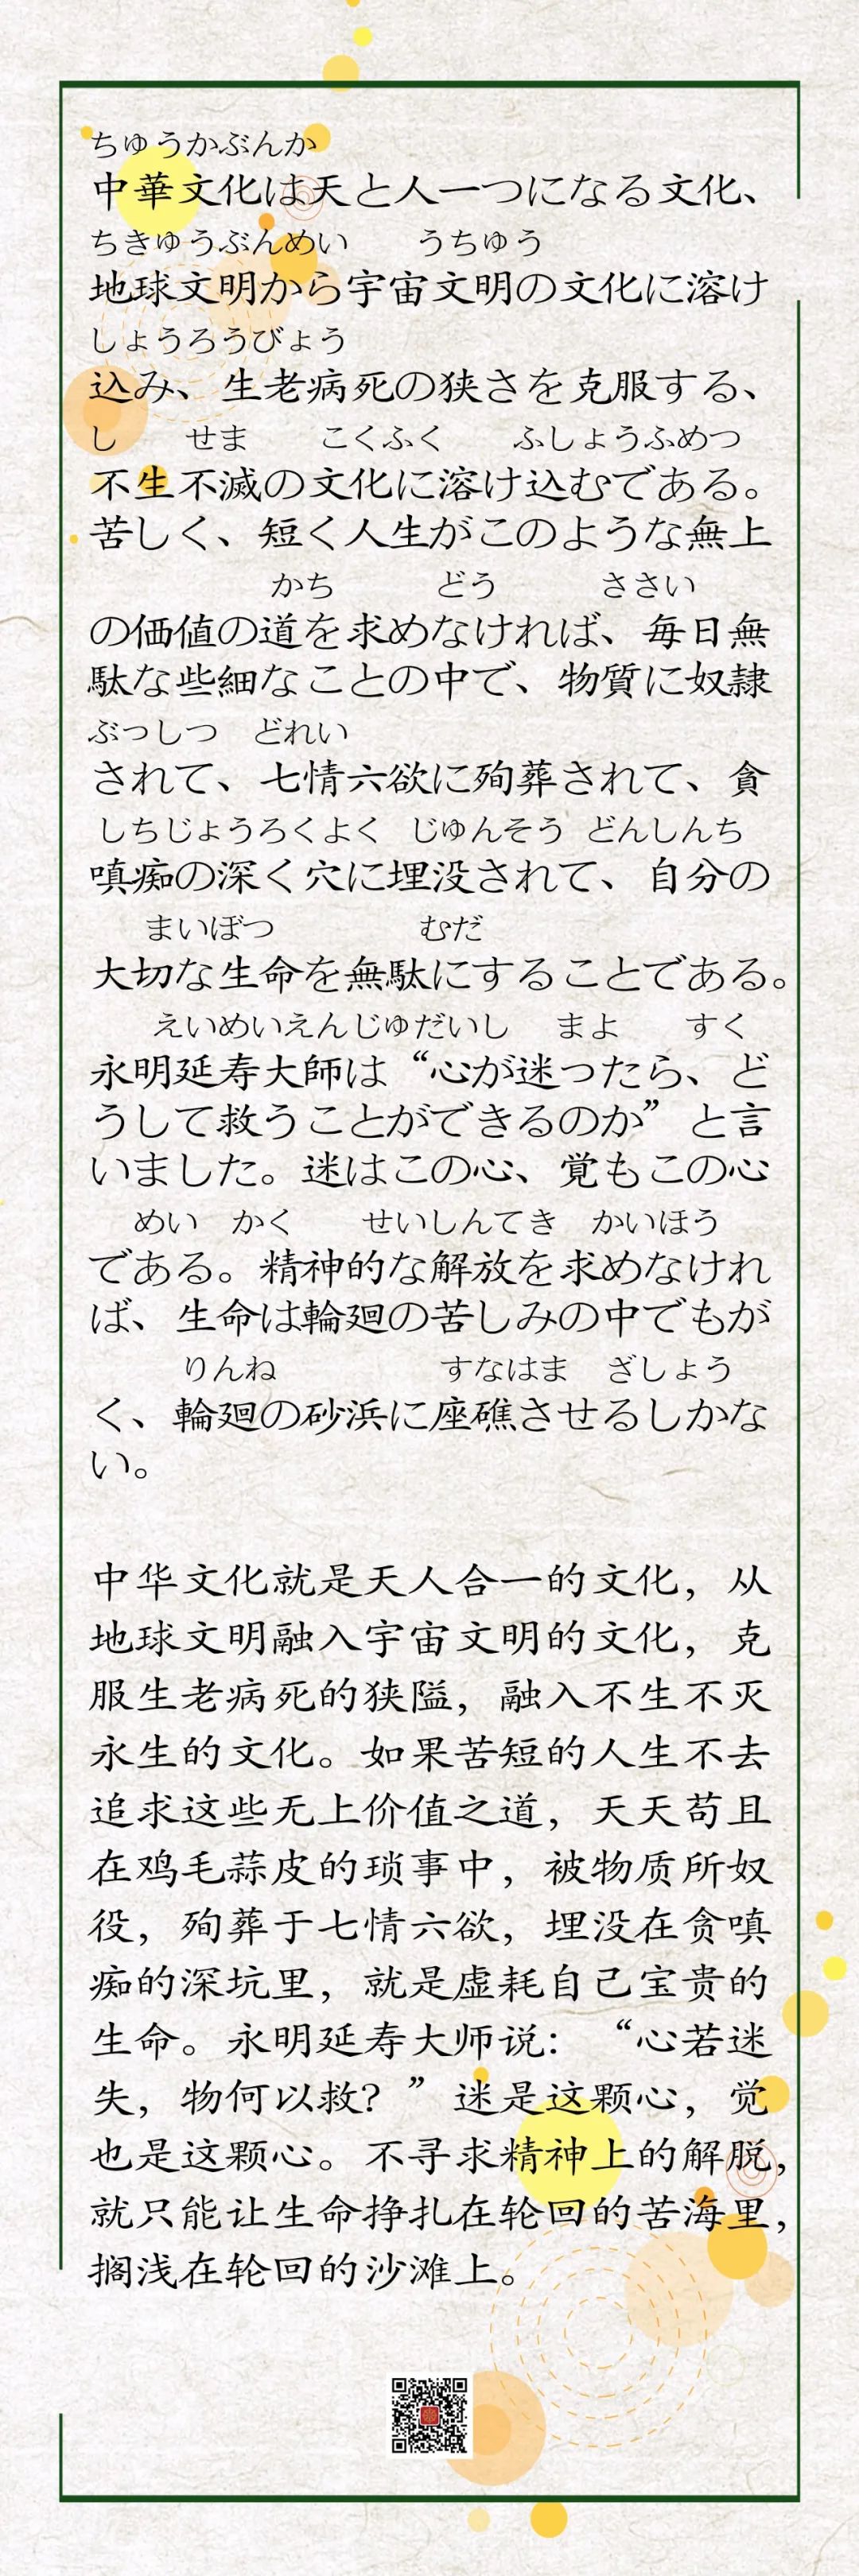 ちゅうかぶんか
中華文化は天と人一つになる文化、
ちきゅうぶんめい うちゅう
地球文明から宇宙文明の文化に溶け
しょうろうびょう
込み、生老病死の狭さを克服する、
し せま こくふく ふしょうふめつ
不生不滅の文化に溶け込むである。
苦しく、短く人生がこのような無上
かち どう ささい
の価値の道を求めなければ、毎日無
駄な些細なことの中で、物質に奴隷
ぶっしつ どれい
されて、七情六欲に殉葬されて、貪
しちじょうろくよく じゅんそう どんしんち
嗔痴の深く穴に埋没されて、自分の
まいぼつ むだ
大切な生命を無駄にすることである。
えいめいえんじゅだいし まよ すく
永明延寿大師は“心が迷ったら、ど
うして救うことができるのか”と言
いました。迷はこの心、覚もこの心
めい かく せいしんてき かいほう
である。精神的な解放を求めなけれ
ば、生命は輪廻の苦しみの中でもが
りんね すなはま ざしょう
く、輪廻の砂浜に座礁させるしかな
い。
中华文化就是天人合一的文化，从
地球文明融入宇宙文明的文化，克
服生老病死的狭隘，融入不生不灭
永生的文化。如果苦短的人生不去
追求这些无上价值之道，天天苟且
在鸡毛蒜皮的琐事中，被物质所奴
役，殉葬于七情六欲，埋没在贪嗔
痴的深坑里，就是虚耗自己宝贵的
生命。永明延寿大师说：“心若迷
失，物何以救？”迷是这颗心，觉
也是这颗心。不寻求精神上的解脱，
就只能让生命挣扎在轮回的苦海里，
搁浅在轮回的沙滩上。